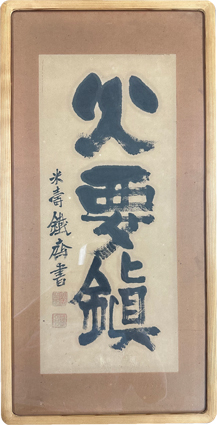 火要鎮
米壽鐵斎書